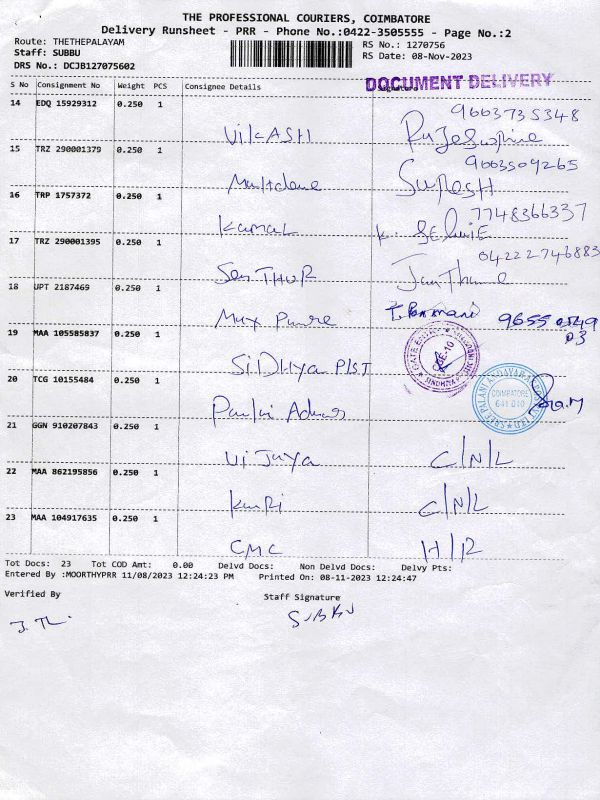 THE PROFESSIONAL COURIERS, COIMBATORE
Delivery Runsheet - PRR - Phone No.:0422-3505555 - Page No.:2
Route: THETHEPALAYAM
RS No.: 1270756
Staff: SUBBU
RS Date: 08-Nov-2023
DRS No.: DCJB127075602
DOCUMENT DELIVERY
S No Consignment No Weight PCS Consignee Details Signature
14 EDQ 15929312 0.250 1
9663735348
VikASH
15 TRZ 290001379 0.250 1
9003509265
SUReSH
16 TRP 1757372 0.250 1
7748366337
KamaL
17 TRZ 290001395 0.250 1
04222746883
SenTHUR
18 UPT 2187469 0.250 1
9655 0549
03
19 MAA 105585837 0.250 1
SiDHya PLST
20 TCG 10155484 0.250 1
COIMBATORE
641 010
21 GGN 910207843 0.250 1
Vijaya C/N/L
22 MAA 862195856 0.250 1
C/N/L
23 MAA 104917635 0.250 1
CMC H/R
Tot Docs: 23 Tot COD Amt: 0.00 Delvd Docs: Non Delvd Docs: Delvy Pts:
Entered By :MOORTHYPRR 11/08/2023 12:24:23 PM Printed On: 08-11-2023 12:24:47
Verified By Staff Signature
SUBBU